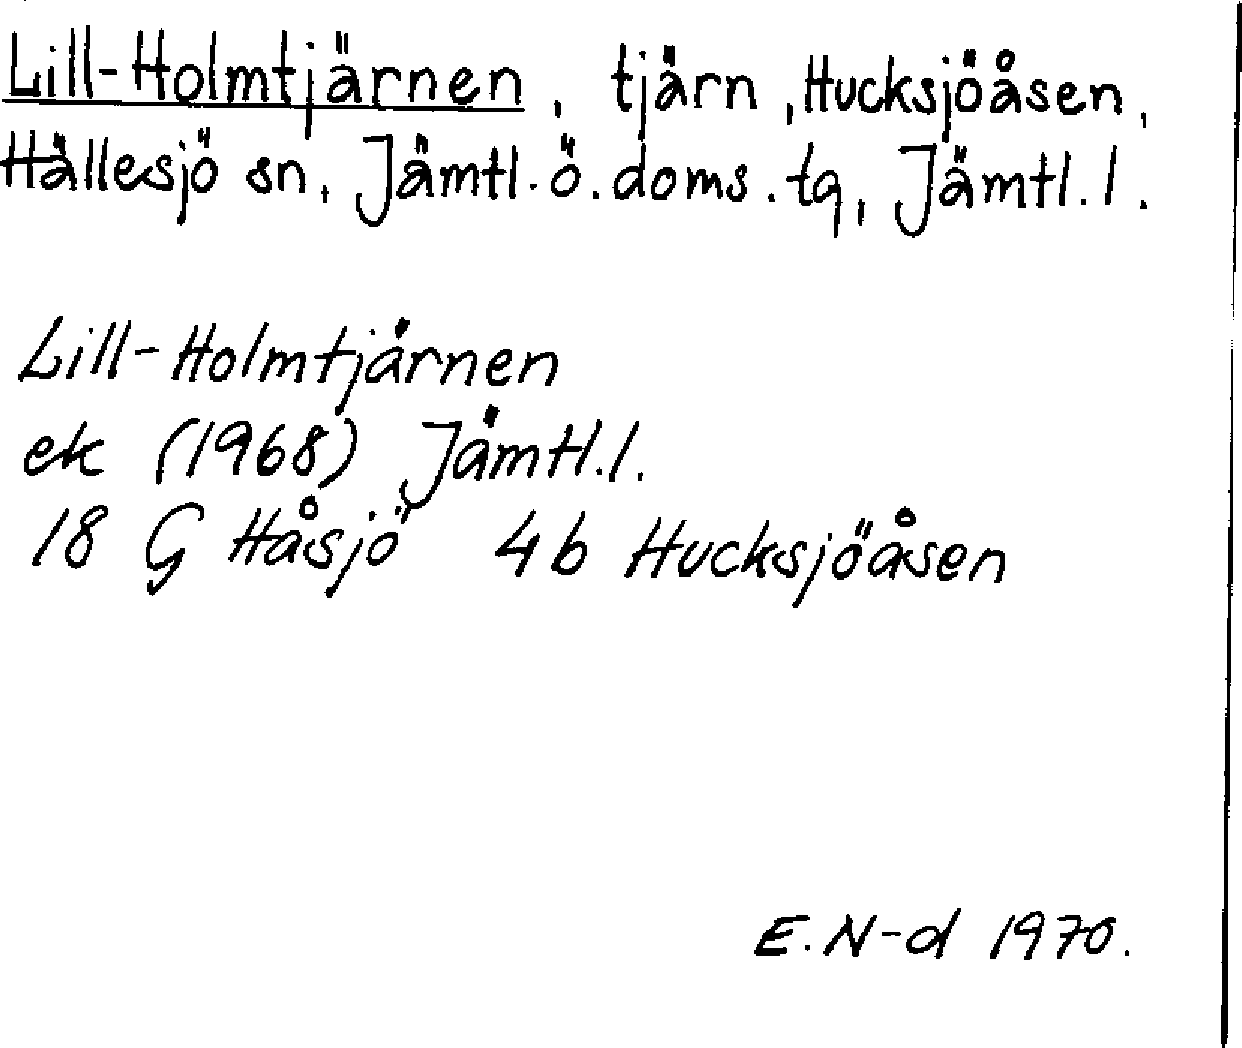 Lill-Holmtjärnen, tjärn, Hucksjöåsen,
Hällesjö sn, Jämtl. ö. doms. tg, Jämtl. l.
Lill-Holmtjärnen
ek (1968) Jämtl. l.
18 G Håsjö 4b Hucksjöåsen
E. N-d 1970.